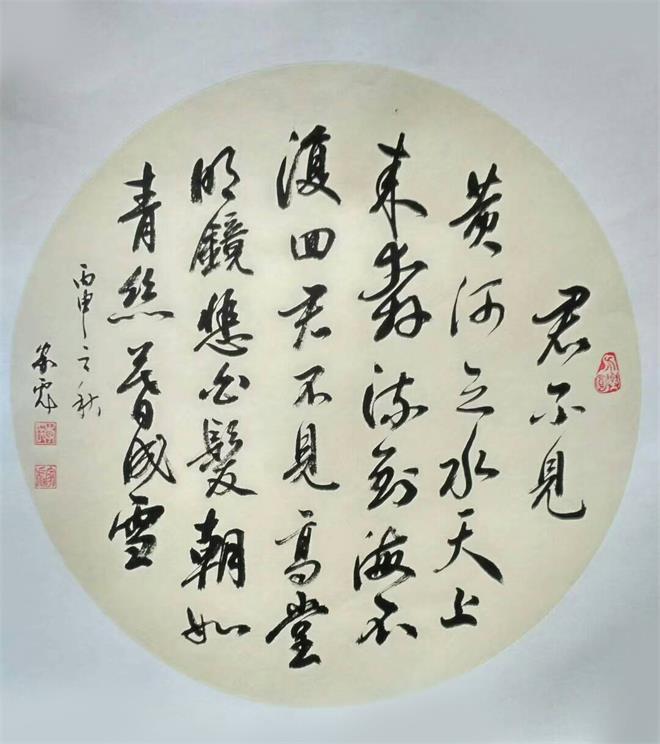 君不見
黄河之水天上
来奔流到海不
復回君不見高堂
明鏡悲白髮朝如
青絲暮成雪
丙申之秋